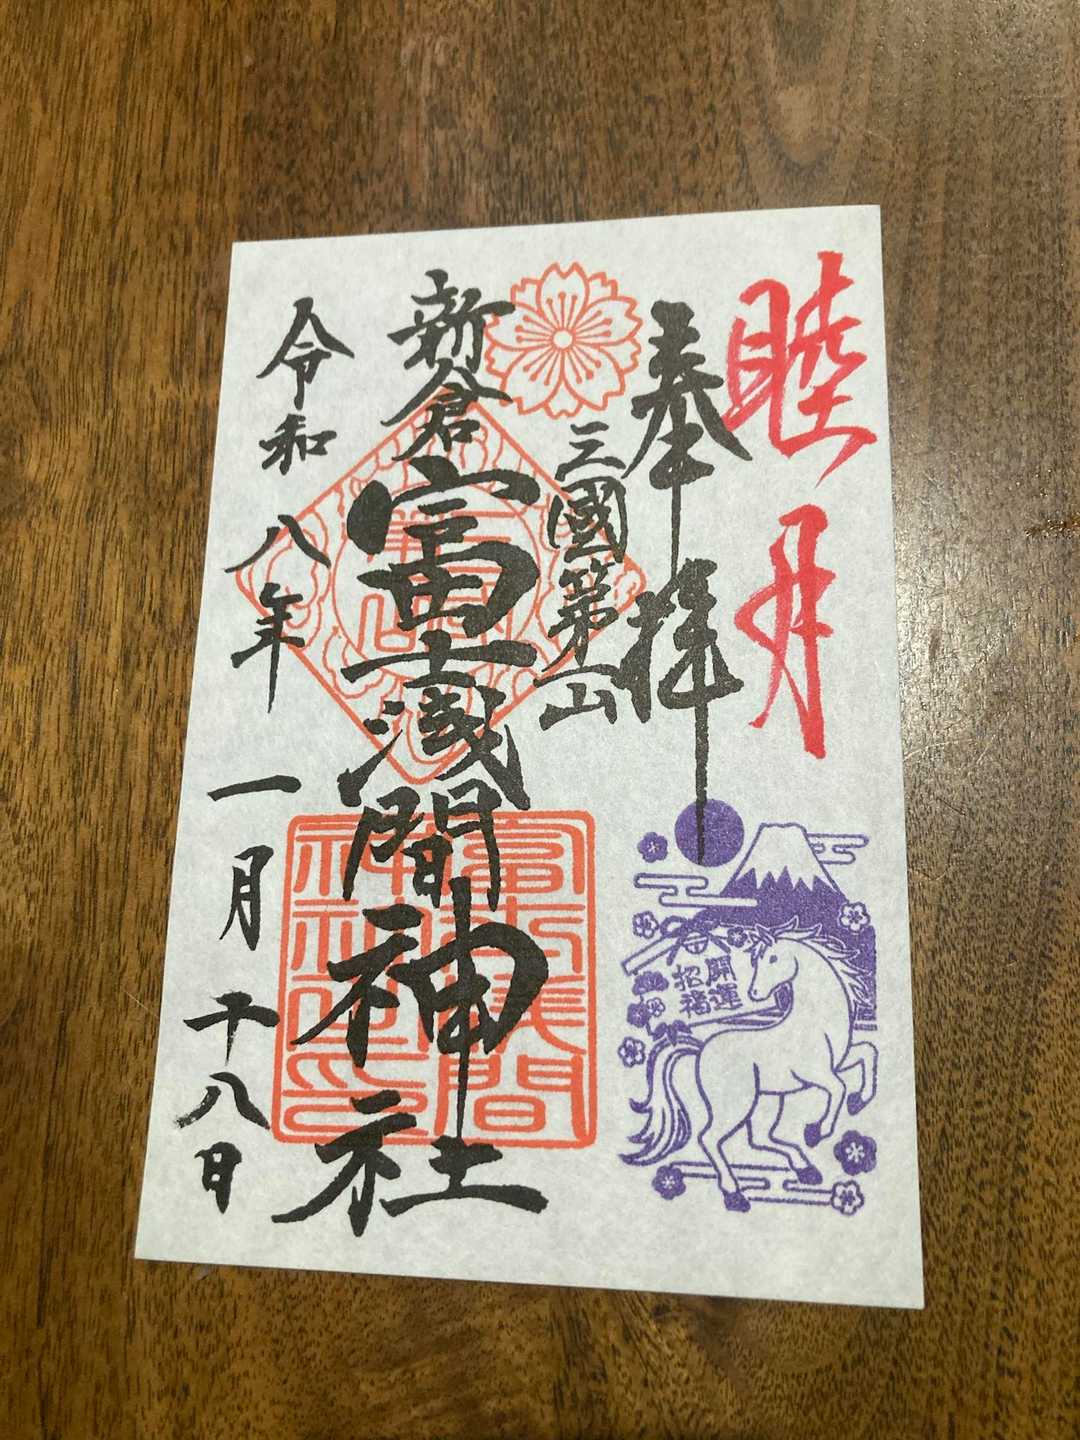 睦月
奉拝
三國第一山
新倉富士浅間神社
令和八年一月十八日
開運
招福
冨士浅間
神社之印